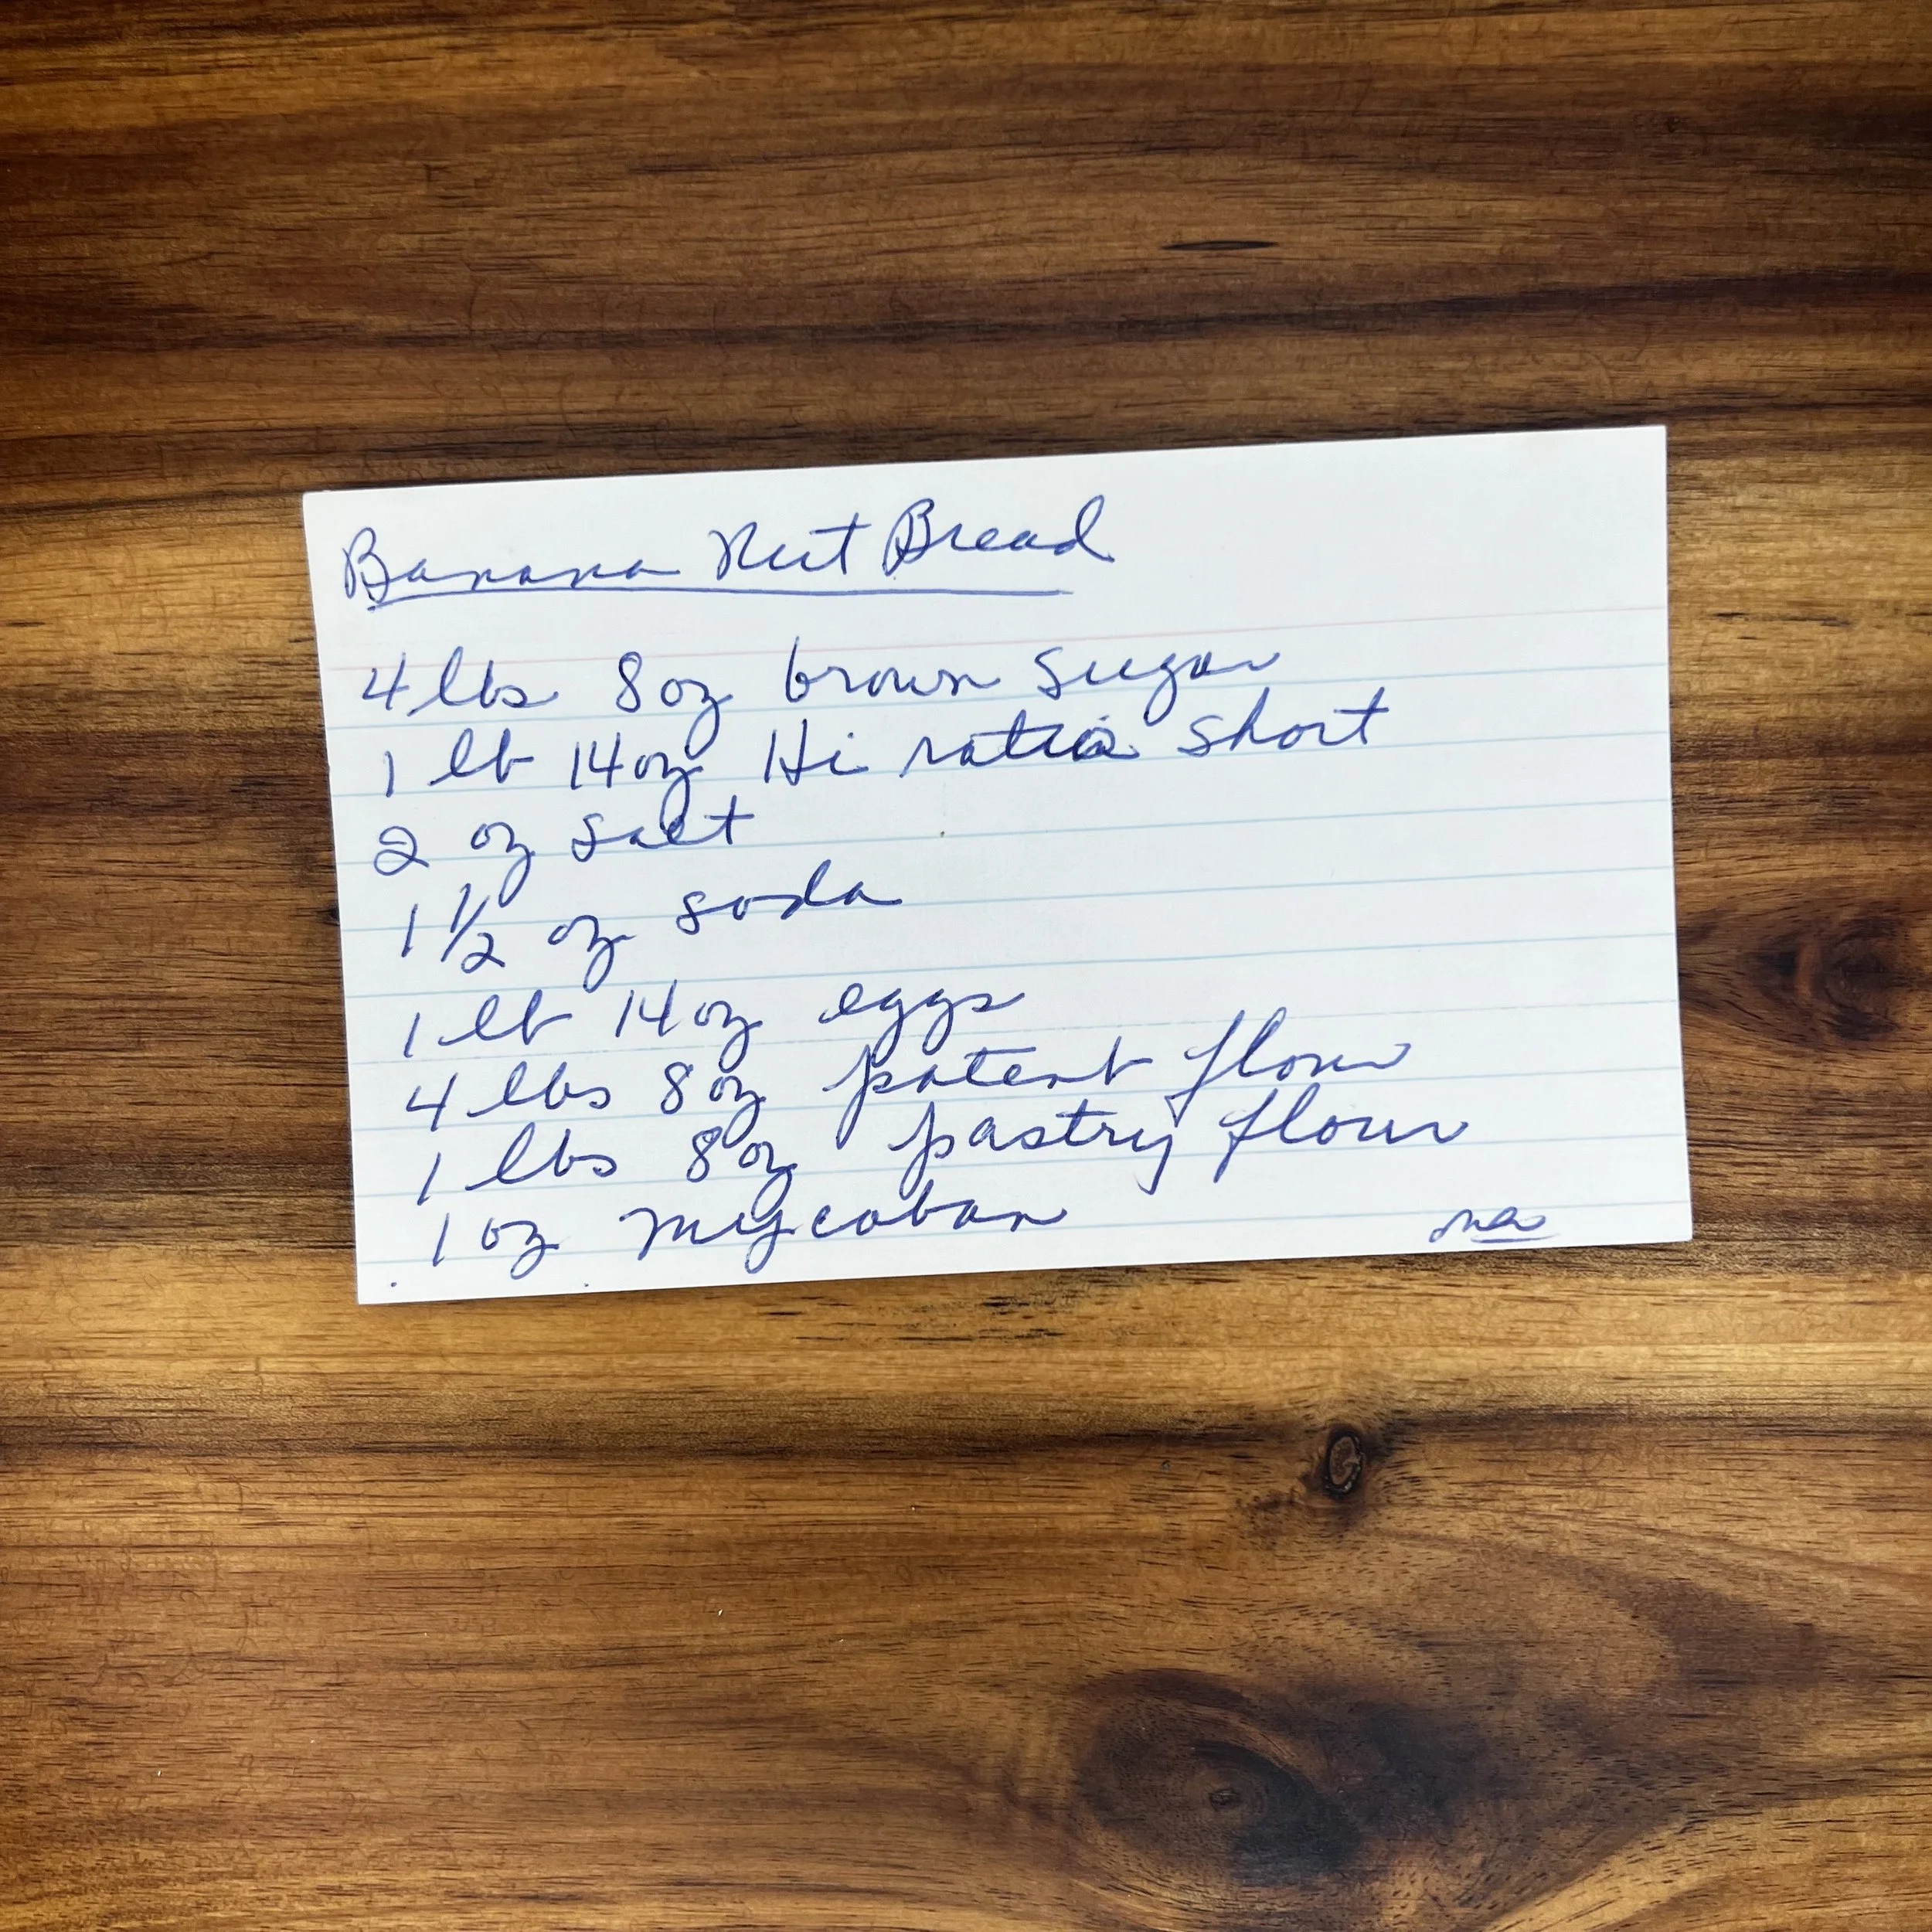 Banana Nut Bread
4 lbs 8 oz brown sugar
1 lb 14 oz Hi ratio short
2 oz salt
1 1/2 oz soda
1 lb 14 oz eggs
4 lbs 8 oz patent flour
1 lbs 8 oz pastry flour
1 oz mycoban